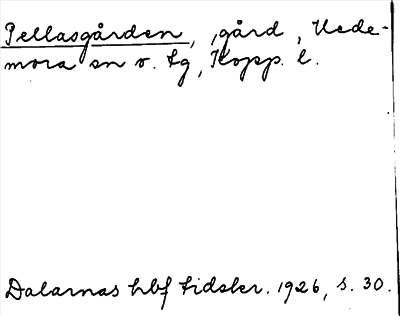 Pellasgården, gård, Hede-
mora sn o. tg, Kopp. l.
Dalarnas hbf tidskr. 1926, s. 30.